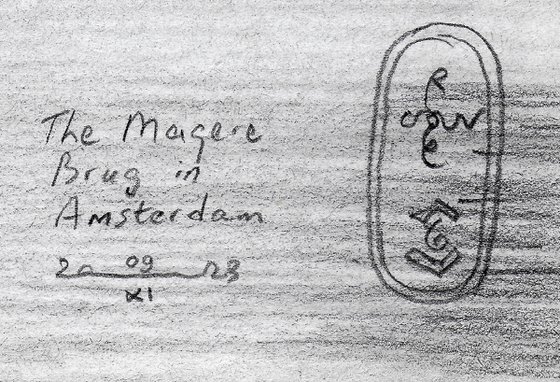 The Magere
Brug in
Amsterdam
20 09 23
XI